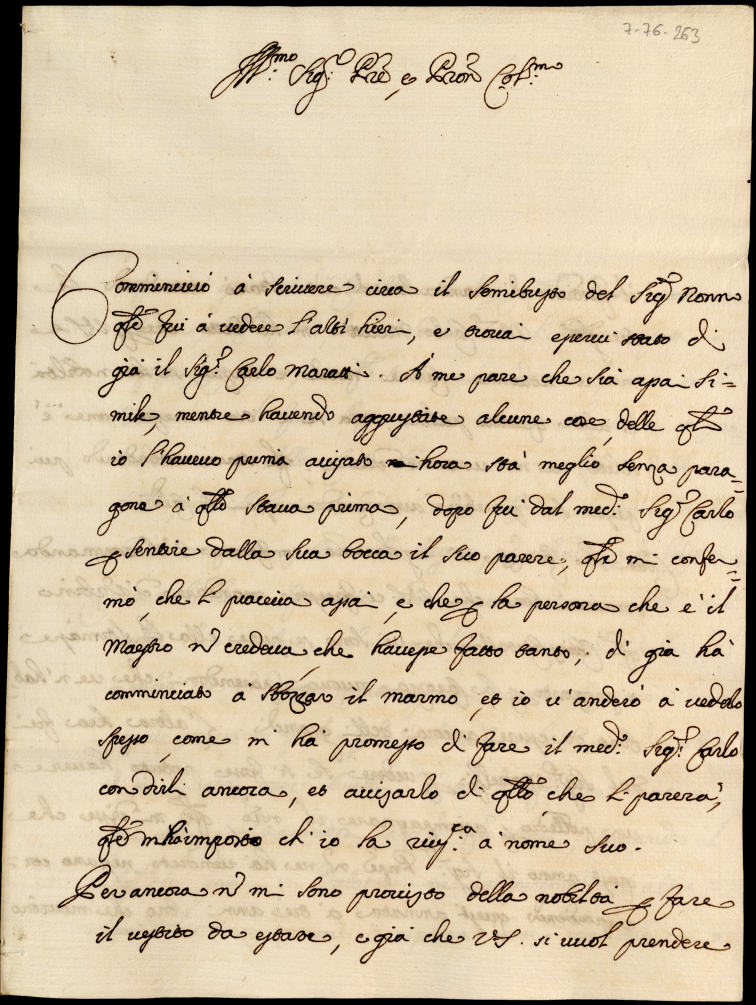 7-76-263
Ill:mo Sig:r Prē, e Pron̄ Col:mo
Comminciió à scrivere circa il semibusto del Sig:r Nonno
qle fui à vedere l'altr' hieri, e trovai esservi stato di
già il Sig:r Carlo Maratti. A me pare che sia assai si=
mile, mentre havendo aggiustate alcune cose, delle qli
io l'havevo prima avisato hora stà meglio senza para=
gone à qllo stava prima, dopo fui dal med:o Sig:r Carlo
p sentire dalla sua bocca il suo parere, qle mi confer=
mò, che li piaceva assai, e che p la persona che è il
Maestro nō credeva, che havesse fatto tanto; di già hà
comminciato à sbozzar il marmo, et io v'anderò à vederlo
spesso, come mi hà promesso di fare il med:o Sig:r Carlo
con dirli ancora, et avisarlo di qllo, che li parerà,
qle m'hà imposto ch' io la riv:ca à nome suo.
Per ancora nō mi sono provisto della nobiltà p fare
il vestito da estate, e già che V.S. si vuol prendere